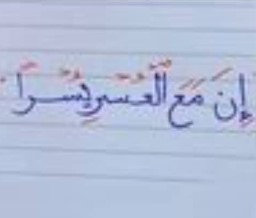 إِنَ مَعَ الْعُسْرِ يُسْرًا